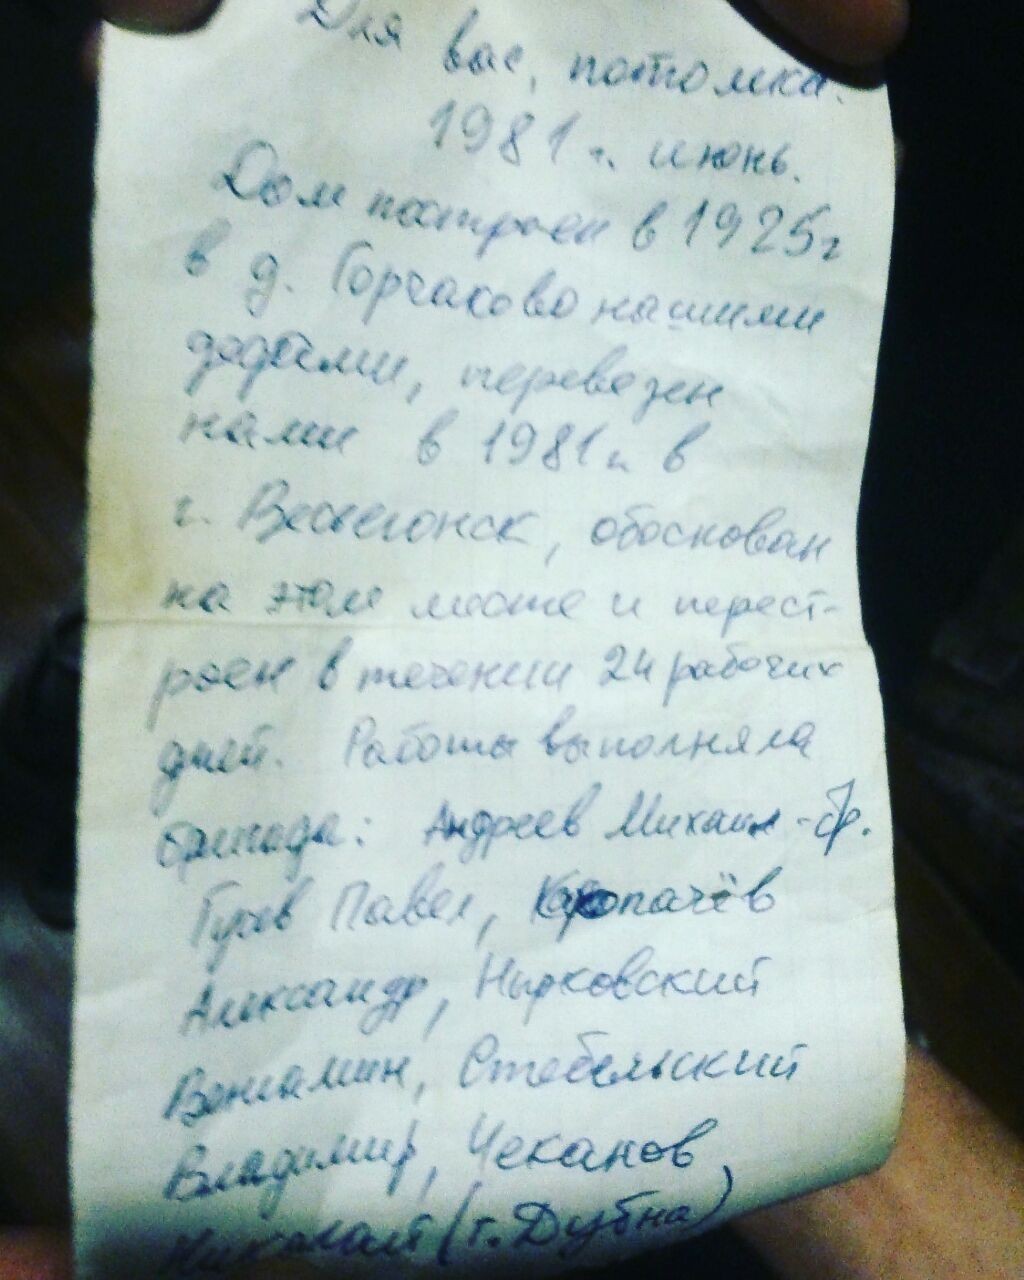 Для вас, потомки.
1981 г. июнь.
Дом построен в 1925г
в д. Горчаково нашими
дедами, перевезен
нами в 1981г. в
г. Весьегонск, обоснован
на этом месте и перест-
роен в течении 24 рабочих
дней. Работы выполняла
бригада: Андреев Михаил -бр.
Гусев Павел, Каропачёв
Александр, Нырковский
Вениамин, Стебельский
Владимир, Чеканов
Николай (г. Дубна)